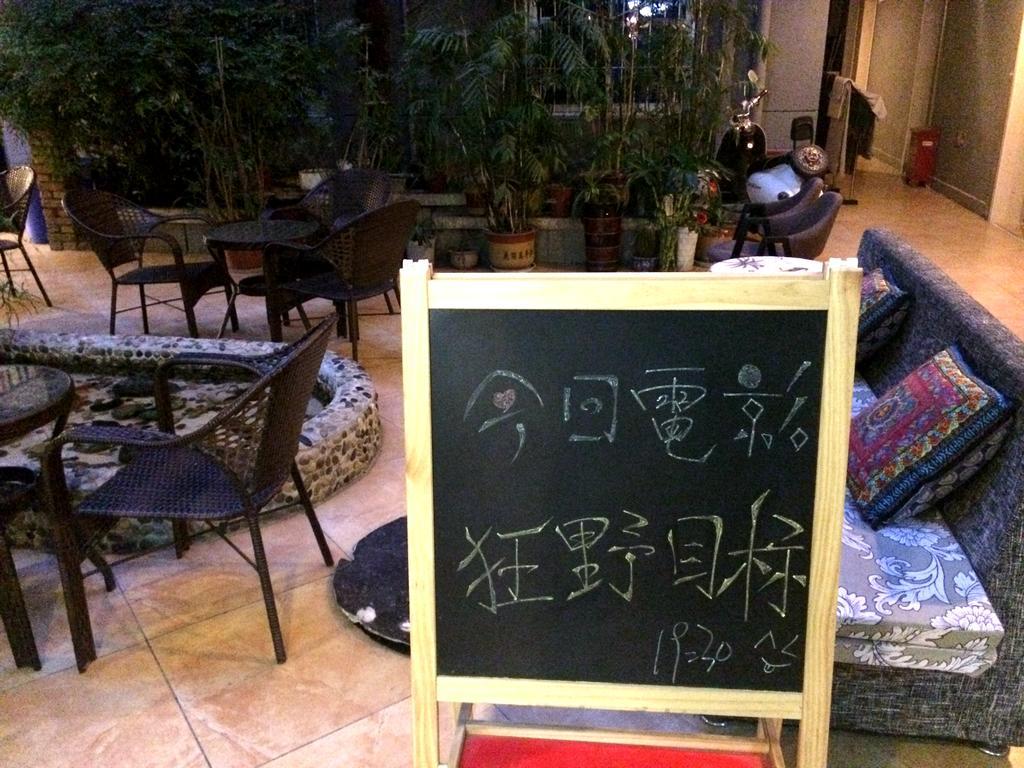 今日電影
狂野目标
19:30